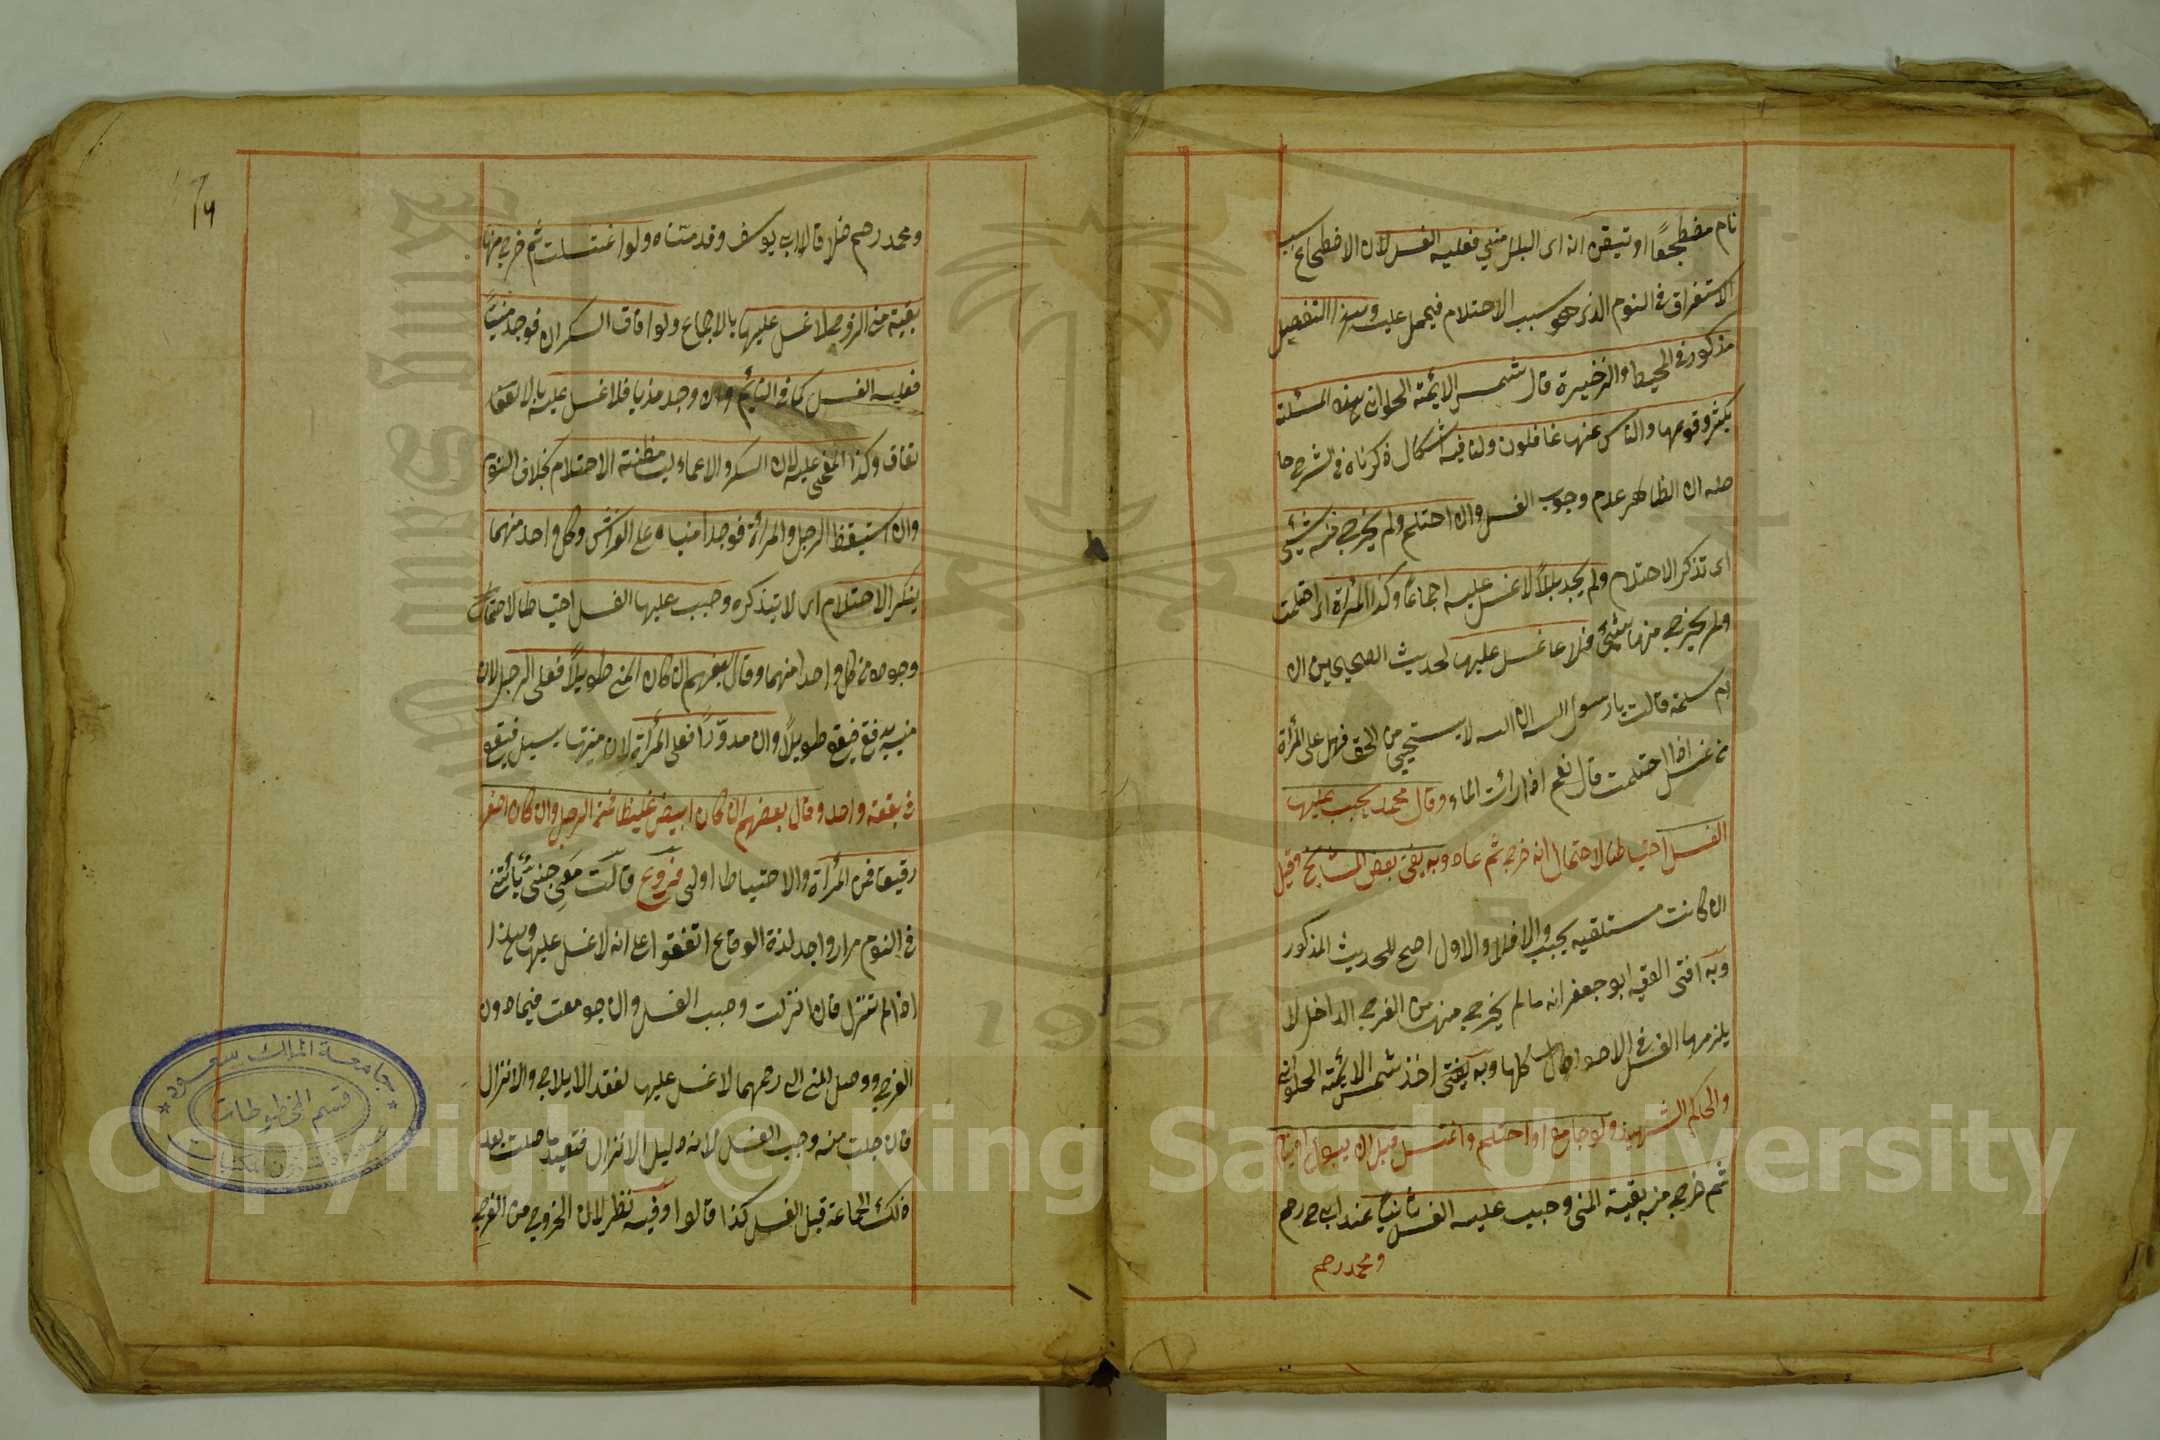 نام مضطجعًا او تيقن انه اى البلل منى فعليه الغسل لان الاضطجاع سبب
الاستغراق فى النوم الذى هو سبب الاحتلام فيحمل عليه وهذا التفصيل
مذكور فى المحيط والذخيرة قال شمس الايمة الحلوانى هذه المسئلة
يكثر وقوعها والناس عنها غافلون ولنا فيه اشكال ذكرناه فى الشرح حا
صله ان الظاهر عدم وجوب الغسل وان احتلم ولم يخرج منه شيئ
اى تذكر الاحتلام ولم يجد بللًا لا غسل عليه اجماعًا وكذا المرأة اى احتلمت
ولم يخرج منها شيئ فلا غسل عليها لحديث الصحيحين ان
ام سلمة قالت يا رسول الله ان الله لا يستحيى من الحق فهل على المرأة
من غسل اذا احتلمت قال نعم اذا رأت الماء وقال محمد يجب عليها
الغسل احتياطا لاحتمال انه خرج ثم عاد وبه يفتى بعض المشايخ وقيل
ان كانت مستلقيه يجب والا فلا والاول اصح للحديث المذكور
وبه افتى الفقيه ابو جعفر انه ما لم يخرج منها من الفرج الداخل لا
يلزمها الغسل فى الاحوال كلها وبه يفتى اخذ شمس الايمة الحلوانى
والحاكم الشهيد ولو جامع او احتلم واغتسل قبل ان يبول او ينام
ثم خرج منه بقية المنى وجب عليه الغسل ثانيًا عند ابى ح رحم
ومحمد رحم
ومحمد رحم خلافا لابى يوسف وقد مناه ولو اغتسلت ثم خرج منها
بقية منى الزوج لا غسل عليها بالاجماع ولو افاق السكران فوجد منيًّا
فعليه الغسل كما فى النائم وان وجد مذيا فلا غسل عليه بالا
تفاق وكذا المغمى عليه لان السكر والاغماء ليسا مظنة الاحتلام بخلاف النوم
وان استيقظ الرجل والمرأة فوجدا منيا على الفراش وكل واحد منهما
ينكر الاحتلام اى لا يتذكره وجب عليها الغسل احتياطا لاحتمال
وجوده من كل واحد منهما وقال بعضهم ان كان المنى طويلًا فعلى الرجل لان
منيه يدفق فيقع طويلًا وان مدوّرًا فعلى المرأة لان منيها يسيل فيقع
فى بقعة واحد وقال بعضهم ان كان ابيض غليظا فمن الرجل وان كان اصفر
رقيقا فمن المرأة والاحتياط اولى فروع قالت معى جنى يأتينى
فى النوم مرارا واجد لذة الوقاع اتفقوا على انه لا غسل عليها وهذا
اذا لم تنزل فان انزلت وجب الغسل وان جومعت فيما دون
الفرج ووصل المنى الى رحمها لا غسل عليها لفقد الايلاج والانزال
فان حبلت منه وجب الغسل لانه دليل الانزال فتعيد ما صلت بعد
ذلك الجماعة قبل الغسل كذا قالوا وفيه نظر لان الخروج من الفرج
جامعة الملك سعود
قسم المخطوطات
Copyright © King Saud University
1957